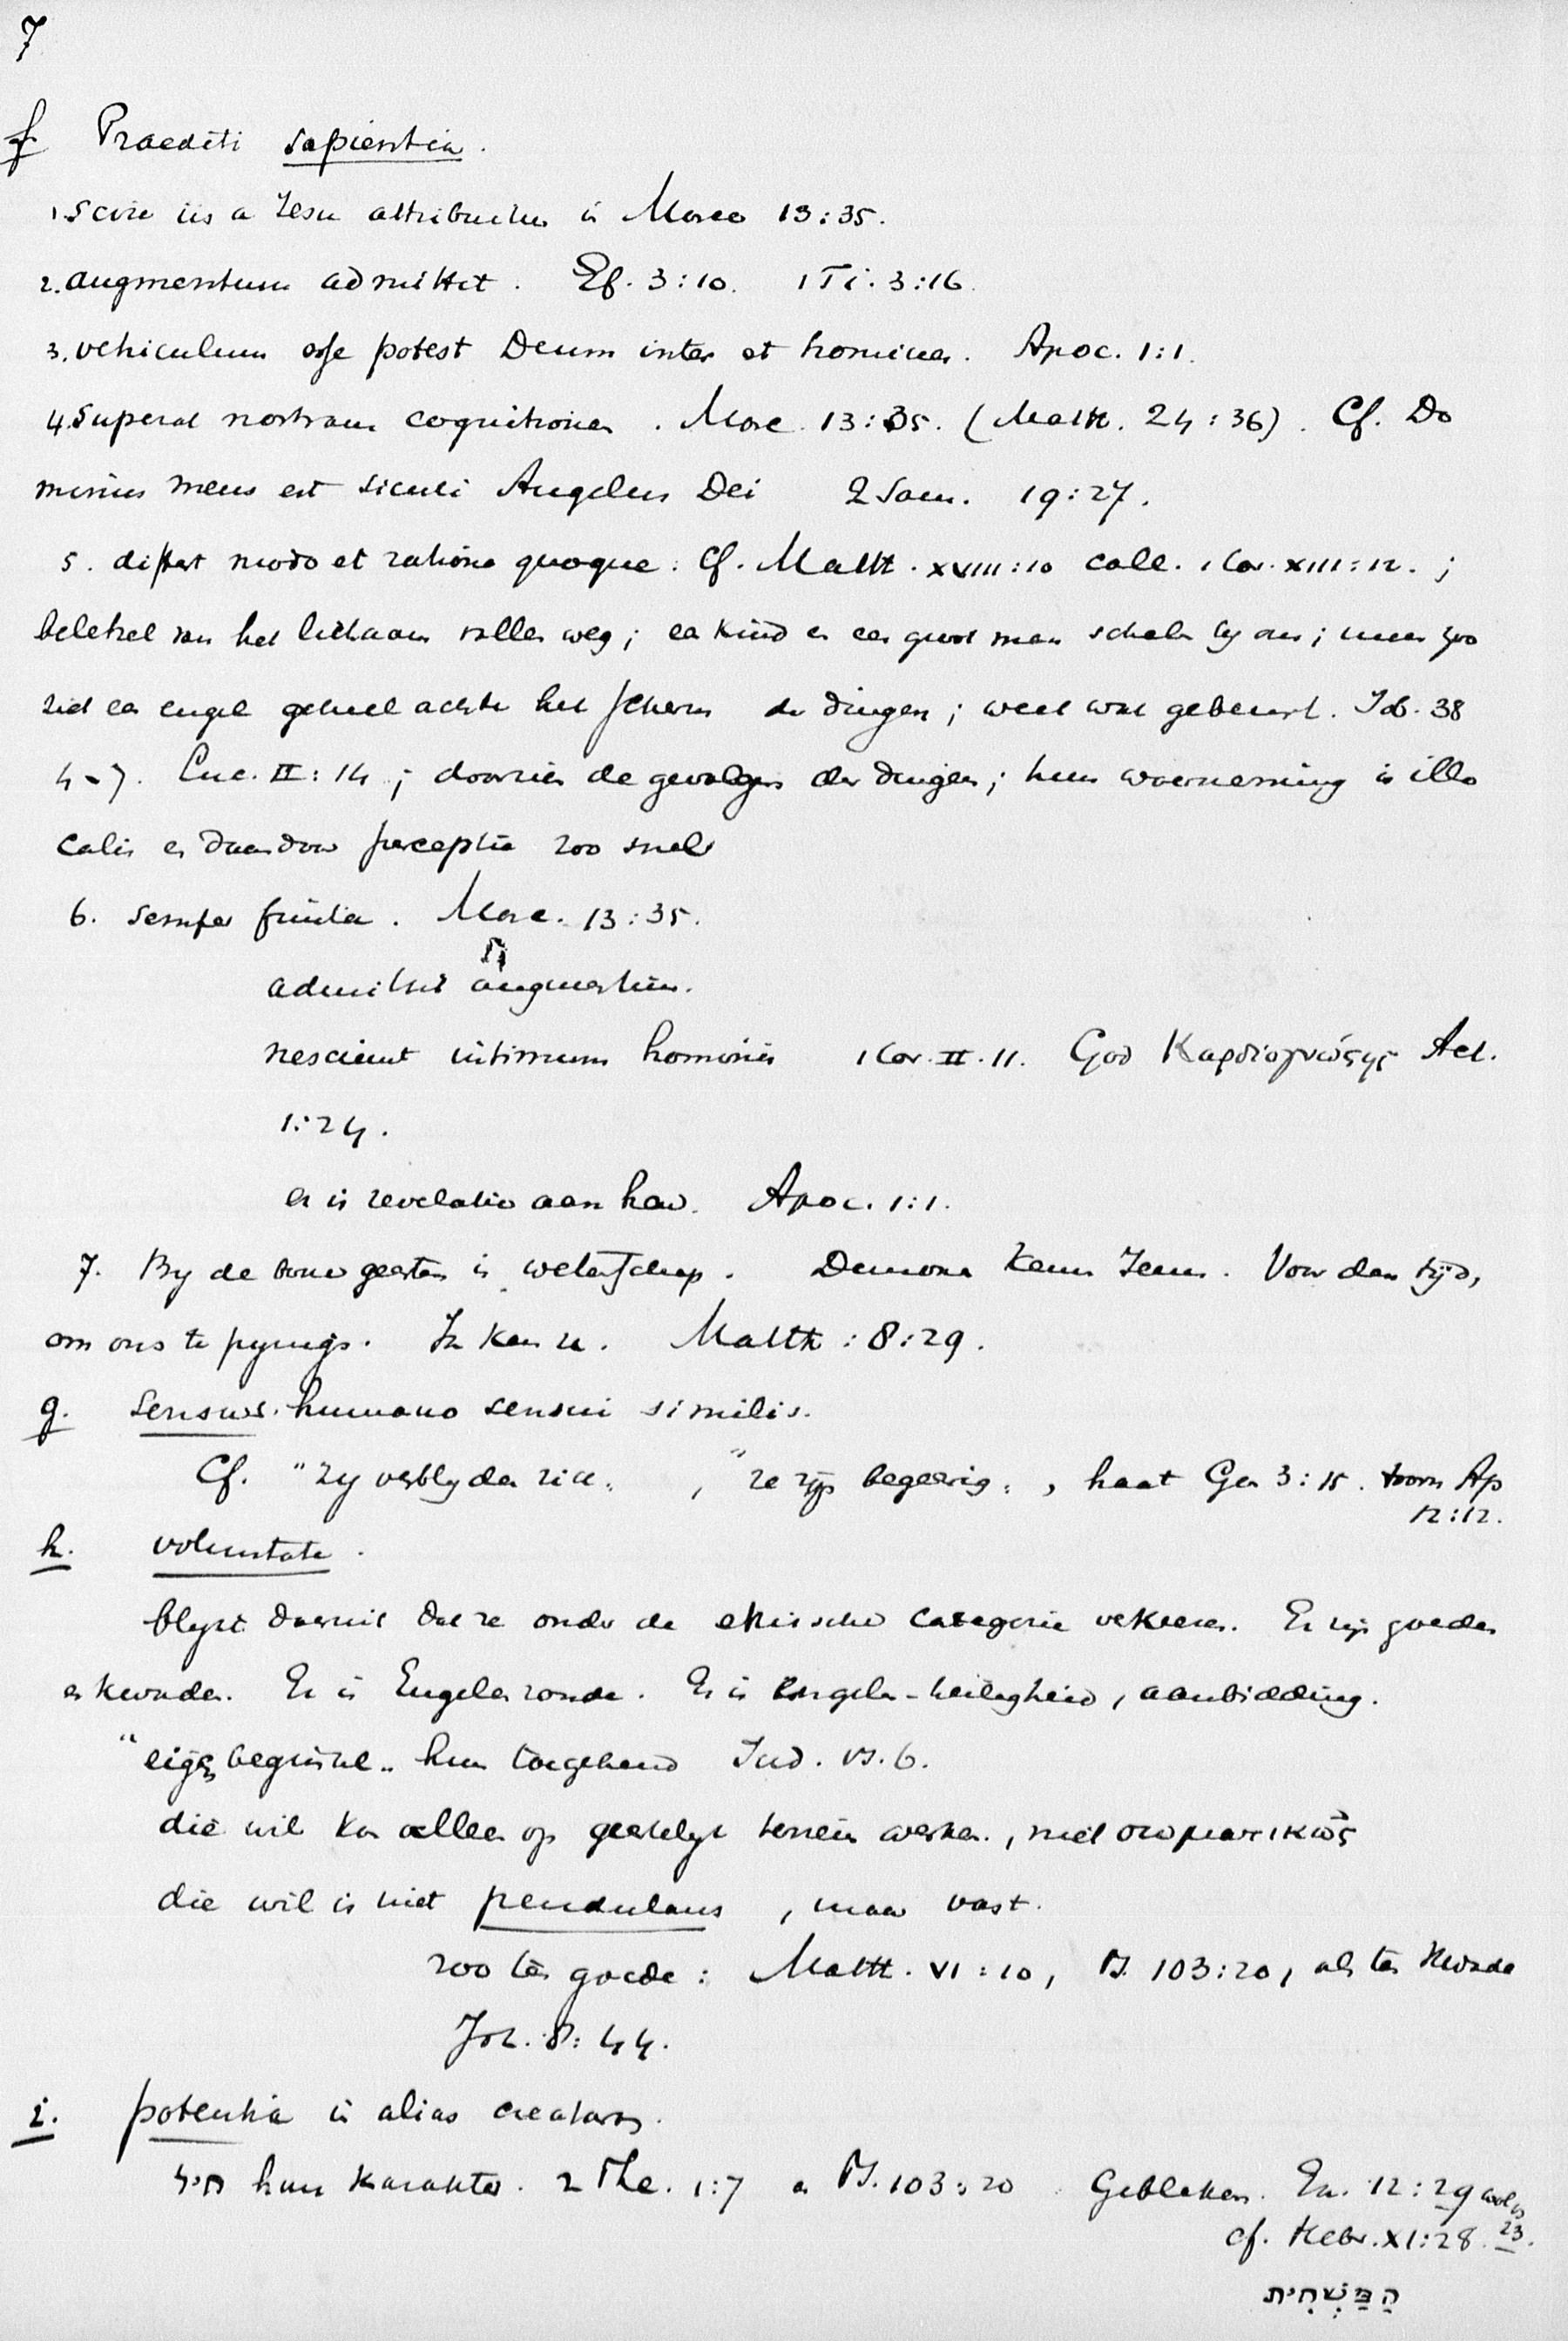 7
f Praediti sapientia.
1. Scire iis a Jesu attribuitur in Marco 13:35.
2. augmentum admittit. Ef. 3:10. 1 Ti. 3:16.
3. vehiculum esse potest Deum inter et homines. Apoc. 1:1.
4. Superat nostram cognitionem. Marc. 13:35. (Matth. 24:36). Cf. Do
minus meus est sicuti Angelus Dei 2 Sam. 19:27.
5. distat modo et ratione quoque: Cf. Matth. XVIII:10 coll. 1 Cor. XIII:12. ;
beletsel van het lichaam vallen weg; een kind en een groot man schelen bij ons; maar zoo
ziet een engel geheel achter het scherm der dingen; weet wat gebeurt. Job. 38
4-7. Luc. II:14; doorzien de gevolgen der dingen; hun waarneming is illo
calis en daardoor perceptie zoo snel
6. semper finita. Marc. 13:35.
admittit augmentum.
nesciunt intimum hominis 1 Cor. II.11. God Καρδιογνώςης Act.
1:24.
er is revelatie aan hen. Apoc. 1:1.
7. By de booze geesten is wetenschap. Demonen kennen Jezus. Voor den tijd,
om ons te pynigen. Ik ken u. Matth: 8:29.
g. Sensus humano sensui similis.
Cf. "Zy verblyden zich", "ze zijn begeerig", haat Gen 3:15. toorn Ap
12:12.
h. voluntate.
blykt daaruit dat ze onder de ethische categorie verkeeren. Er zijn goeden
en kwaden. Er is Engelenzonde. Er is engelen-heiligheid, aanbidding.
"eigen beginsel" hun toegekend Jud. vs. 6.
die wil kan alleen op geestelyk terrein werken, niet σωματικῶς
die wil is niet pendulans, maar vast.
zoo ten goede: Matth. VI:10, Ps. 103:20, als ten kwade
Joh. 8:44.
i. potentia in alias creaturas.
חיל hun karakter. 2 The. 1:7 en Ps. 103:20 Gebleken. Ex. 12:29 volg
cf. Hebr. XI:28. 23.
הַמַּשְׁחִית